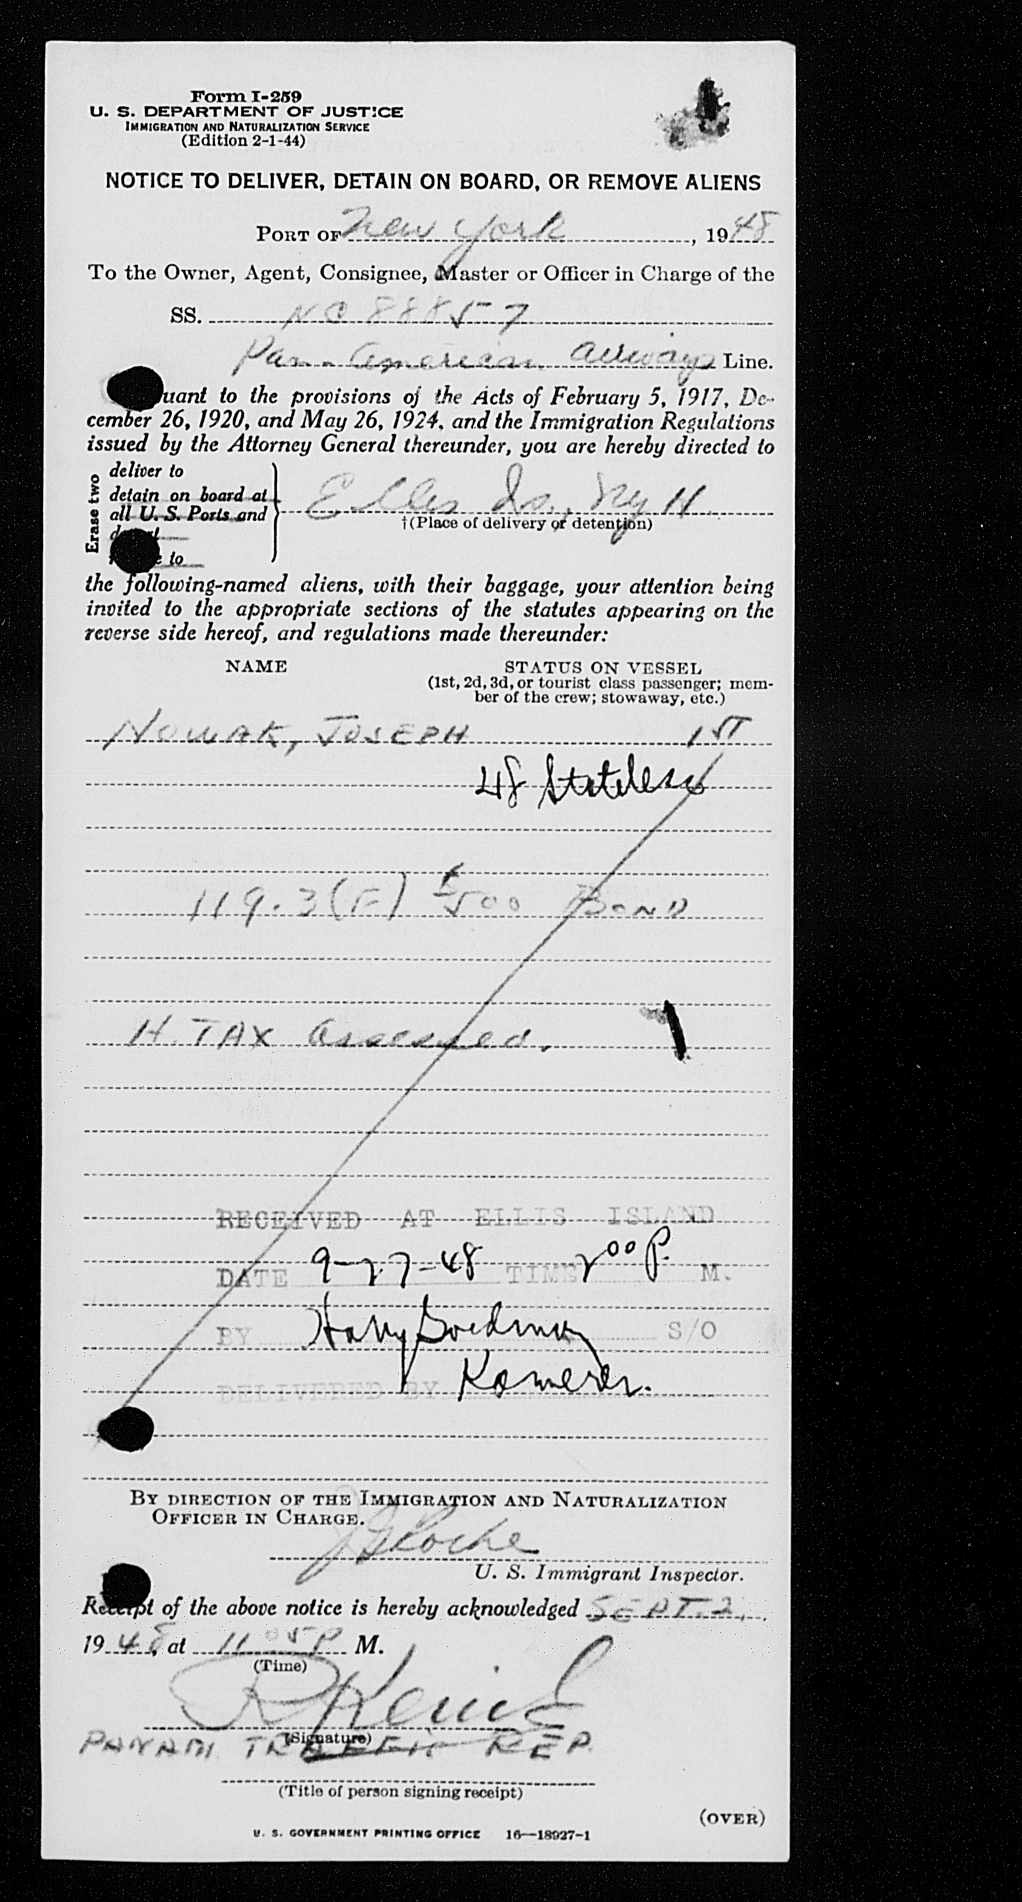 Form I-259
U. S. DEPARTMENT OF JUSTICE
IMMIGRATION AND NATURALIZATION SERVICE
(Edition 2-1-44)
NOTICE TO DELIVER, DETAIN ON BOARD, OR REMOVE ALIENS
PORT OF New York, 1948
To the Owner, Agent, Consignee, Master or Officer in Charge of the
SS. NC 88857
Pan-American Airways Line.
uant to the provisions of the Acts of February 5, 1917, De-
cember 26, 1920, and May 26, 1924, and the Immigration Regulations
issued by the Attorney General thereunder, you are hereby directed to
Erase two
deliver to
detain on board at
all U. S. Ports and
to
Ellis Is., NY H
†(Place of delivery or detention)
the following-named aliens, with their baggage, your attention being
invited to the appropriate sections of the statutes appearing on the
reverse side hereof, and regulations made thereunder:
NAME STATUS ON VESSEL
(1st, 2d, 3d, or tourist class passenger; mem-
ber of the crew; stowaway, etc.)
NOWAK, JOSEPH 1ST
48 Stateless
119.3(F) $500 BOND
H. TAX assessed.
RECEIVED AT ELLIS ISLAND
DATE 9-27-48 TIME 2 00 P. M.
BY Harry S/O
DELIVERED BY
BY DIRECTION OF THE IMMIGRATION AND NATURALIZATION
OFFICER IN CHARGE.
Roche
U. S. Immigrant Inspector.
Receipt of the above notice is hereby acknowledged SEPT. 2,
1948, at 11 05 P M.
(Time)
(Signature)
PANAM TRAFFIC REP.
(Title of person signing receipt)
(OVER)
U. S. GOVERNMENT PRINTING OFFICE 16—18927-1